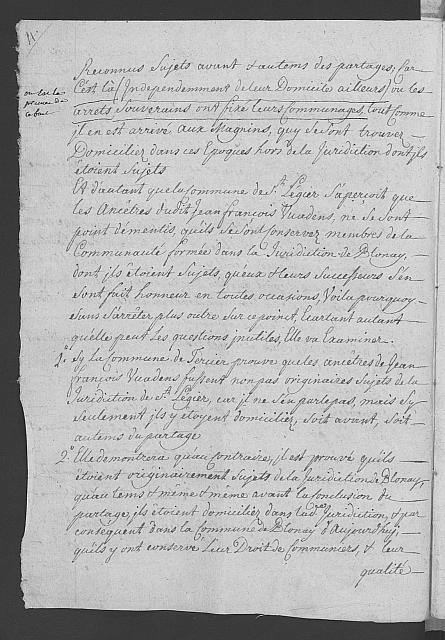 11.
Reconnus Sujets avant & autems des partages; Car
C'est là (Independemment de leur Domicile ailleurs) où les
arrets Souverains ont fixé leurs Communages, tout comme
il en est arrivé aux Magnins, quy se sont trouvez
Domicilies dans ces Epoques hors de la Juridiction dont ils
étoient Sujets
Et d'autant que la Commune de St. Légier S'aperçoit que
les Ancêtres dudit Jean françois Vuadens, ne se sont
point dementis, qu'ils se sont conservez membres de la
Communauté formée dans la Juridiction de Blonay,
dont ils étoient Sujets, qu'eux & leurs Successeurs S'en
Sont fait honneur en toutes occasions, Voilà pourquoy
Sans S'arrêter plus outre Sur ce point, Ecartant autant
qu'elle peut Les questions inutiles, Elle va Examiner.
1.° Sy la Commune de Tercier prouve que les ancêtres de Jean
françois Vuadens fussent non pas originaires Sujets de la
Juridiction de St. Légier, car il ne S'en parle pas, mais Sy
Seulement ils y étoyent domiciliez, Soit avant, Soit
autems du partage
2.° Elle démontrera qu'au contraire, il est prouvé qu'ils
étoient originairement Sujets de la Juridiction de Blonay,
qu'au tems & même & même avant la Conclusion du
partage, ils étoient domiciliez dans lad.te Juridiction, & par
conséquent dans la Commune de Blonay d'aujourdhuy;
qu'ils y ont conservé Leur Droit de Communiers, & leur
qualité